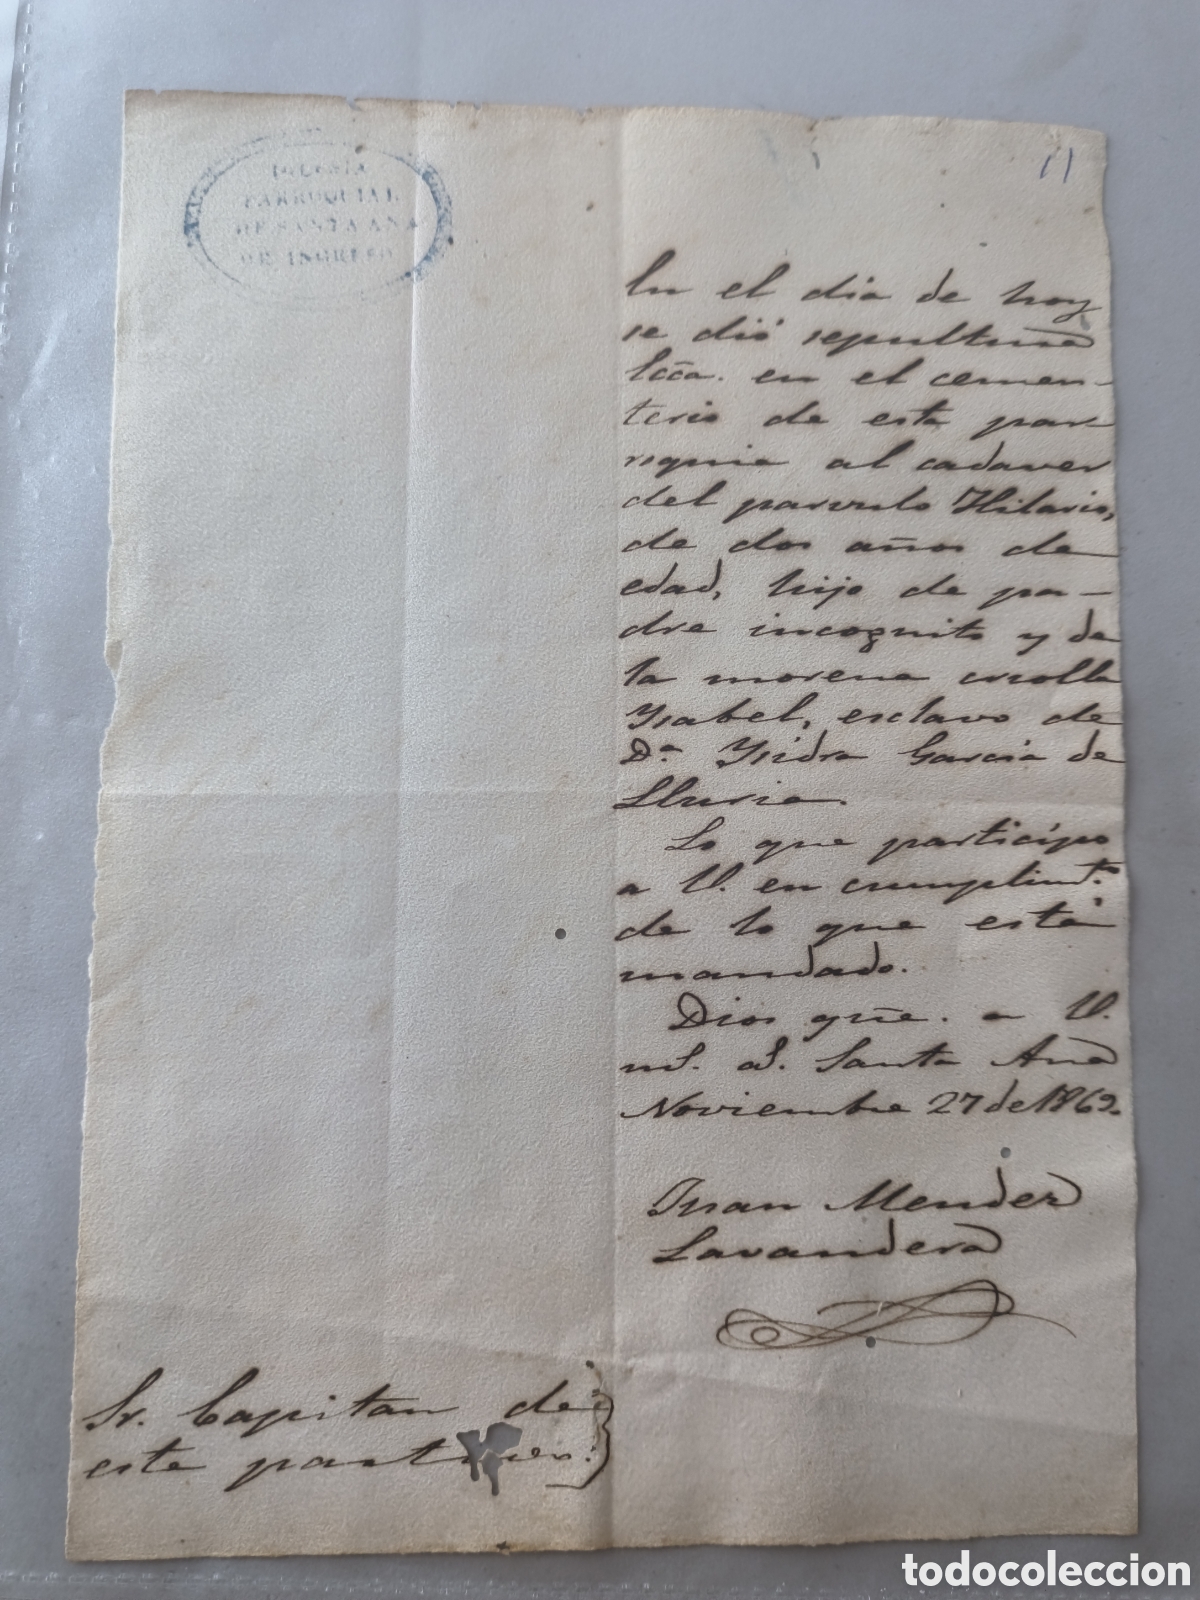 IGLESIA
PARROQUIAL
DE SANTA ANA
DE INGRESO
11
En el dia de hoy
se dió sepultura
Ecca. en el cemen-
terio de esta par-
roquia al cadaver
del parvulo Hilario,
de dos años de
edad, hijo de pa-
dre incognito y de
la morena criolla
Ysabel, esclavo de
Da. Ysidra Garcia de
Lluria.
Lo que participo
a V. en cumplimto.
de lo que está
mandado.
Dios gũe. a V.
ms. as. Santa Ana
Noviembre 27 de 1862.
Juan Mendez
Lavandera
Sr. Capitan de
este part
todocoleccion